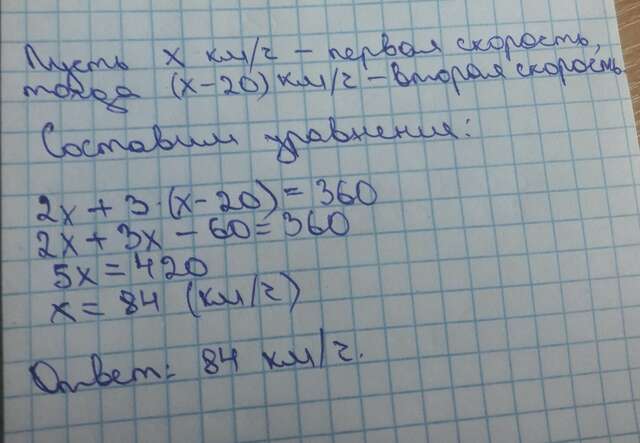 Пусть х км/ч – первая скорость,
тогда (х-20) км/ч – вторая скорость.
Составим уравнения:
2х + 3·(х-20) = 360
2х + 3х - 60 = 360
5х = 420
х = 84 (км/ч)
Ответ: 84 км/ч.